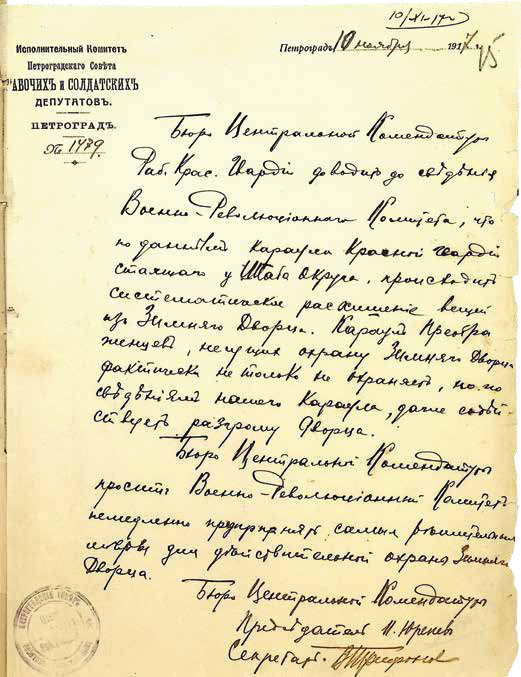 10/XI-17 г.
Исполнительный Комитетъ
Петроградскаго Совѣта
АБОЧИХЪ и СОЛДАТСКИХЪ
ДЕПУТАТОВЪ.
ПЕТРОГРАДЪ.
№ 1479.
Петроградъ 10 ноября 1917
Бюро Центральной Комендатуры
Раб. Крас. Гвардіи доводитъ до свѣдѣнія
Военно-Революціоннаго Комитета, что
по даннымъ караула Красной Гвардіи
стоящаго у Штаба Округа, происходитъ
систематическое расхищеніе вещей
изъ Зимняго Дворца. Караулъ Преобра
женцевъ, несущихъ охрану Зимняго Дворца
фактически не только не охраняетъ, но по
свѣдѣніямъ нашего Караула, даже содѣй-
ствуетъ разгрому Дворца.
Бюро Центральной Комендатуры
проситъ Военно-Революціонный Комитетъ
немедленно предпринять самыя рѣшительныя
мѣры для дѣйствительной охраны Зимняго
Дворца.
Бюро Центральной Комендатуры
Предсѣдатель И. Юреневъ
Секретарь В. Трифонов